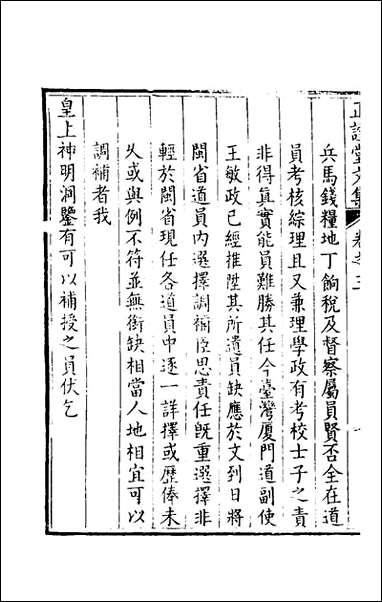 正誼堂文集　卷之三
兵馬錢糧地丁餉稅及督察屬員賢否全在道
員考核綜理且又兼理學政有考校士子之責
非得真實能員難勝其任今臺灣厦門道副使
王敏政已經推陞其所遺員缺應於文到日將
閩省道員內選擇調補臣思責任旣重選擇非
輕於閩省現任各道員中逐一詳擇或歷俸未
久或與例不符並無銜缺相當人地相宜可以
調補者我
皇上神明洞鑒有可以補授之員伏乞